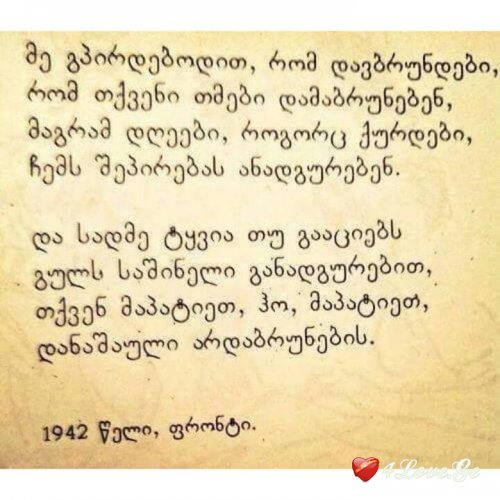 მე გპირდებოდით, რომ დავბრუნდები,
რომ თქვენი თმები დამაბრუნებენ,
მაგრამ დღეები, როგორც ქურდები,
ჩემს შეპირებას ანადგურებენ.
და სადმე ტყვია თუ გააციებს
გულს საშინელი განადგურებით,
თქვენ მაპატიეთ, ჰო, მაპატიეთ,
დანაშაული არდაბრუნების.
1942 წელი, ფრონტი.
4Love.Ge